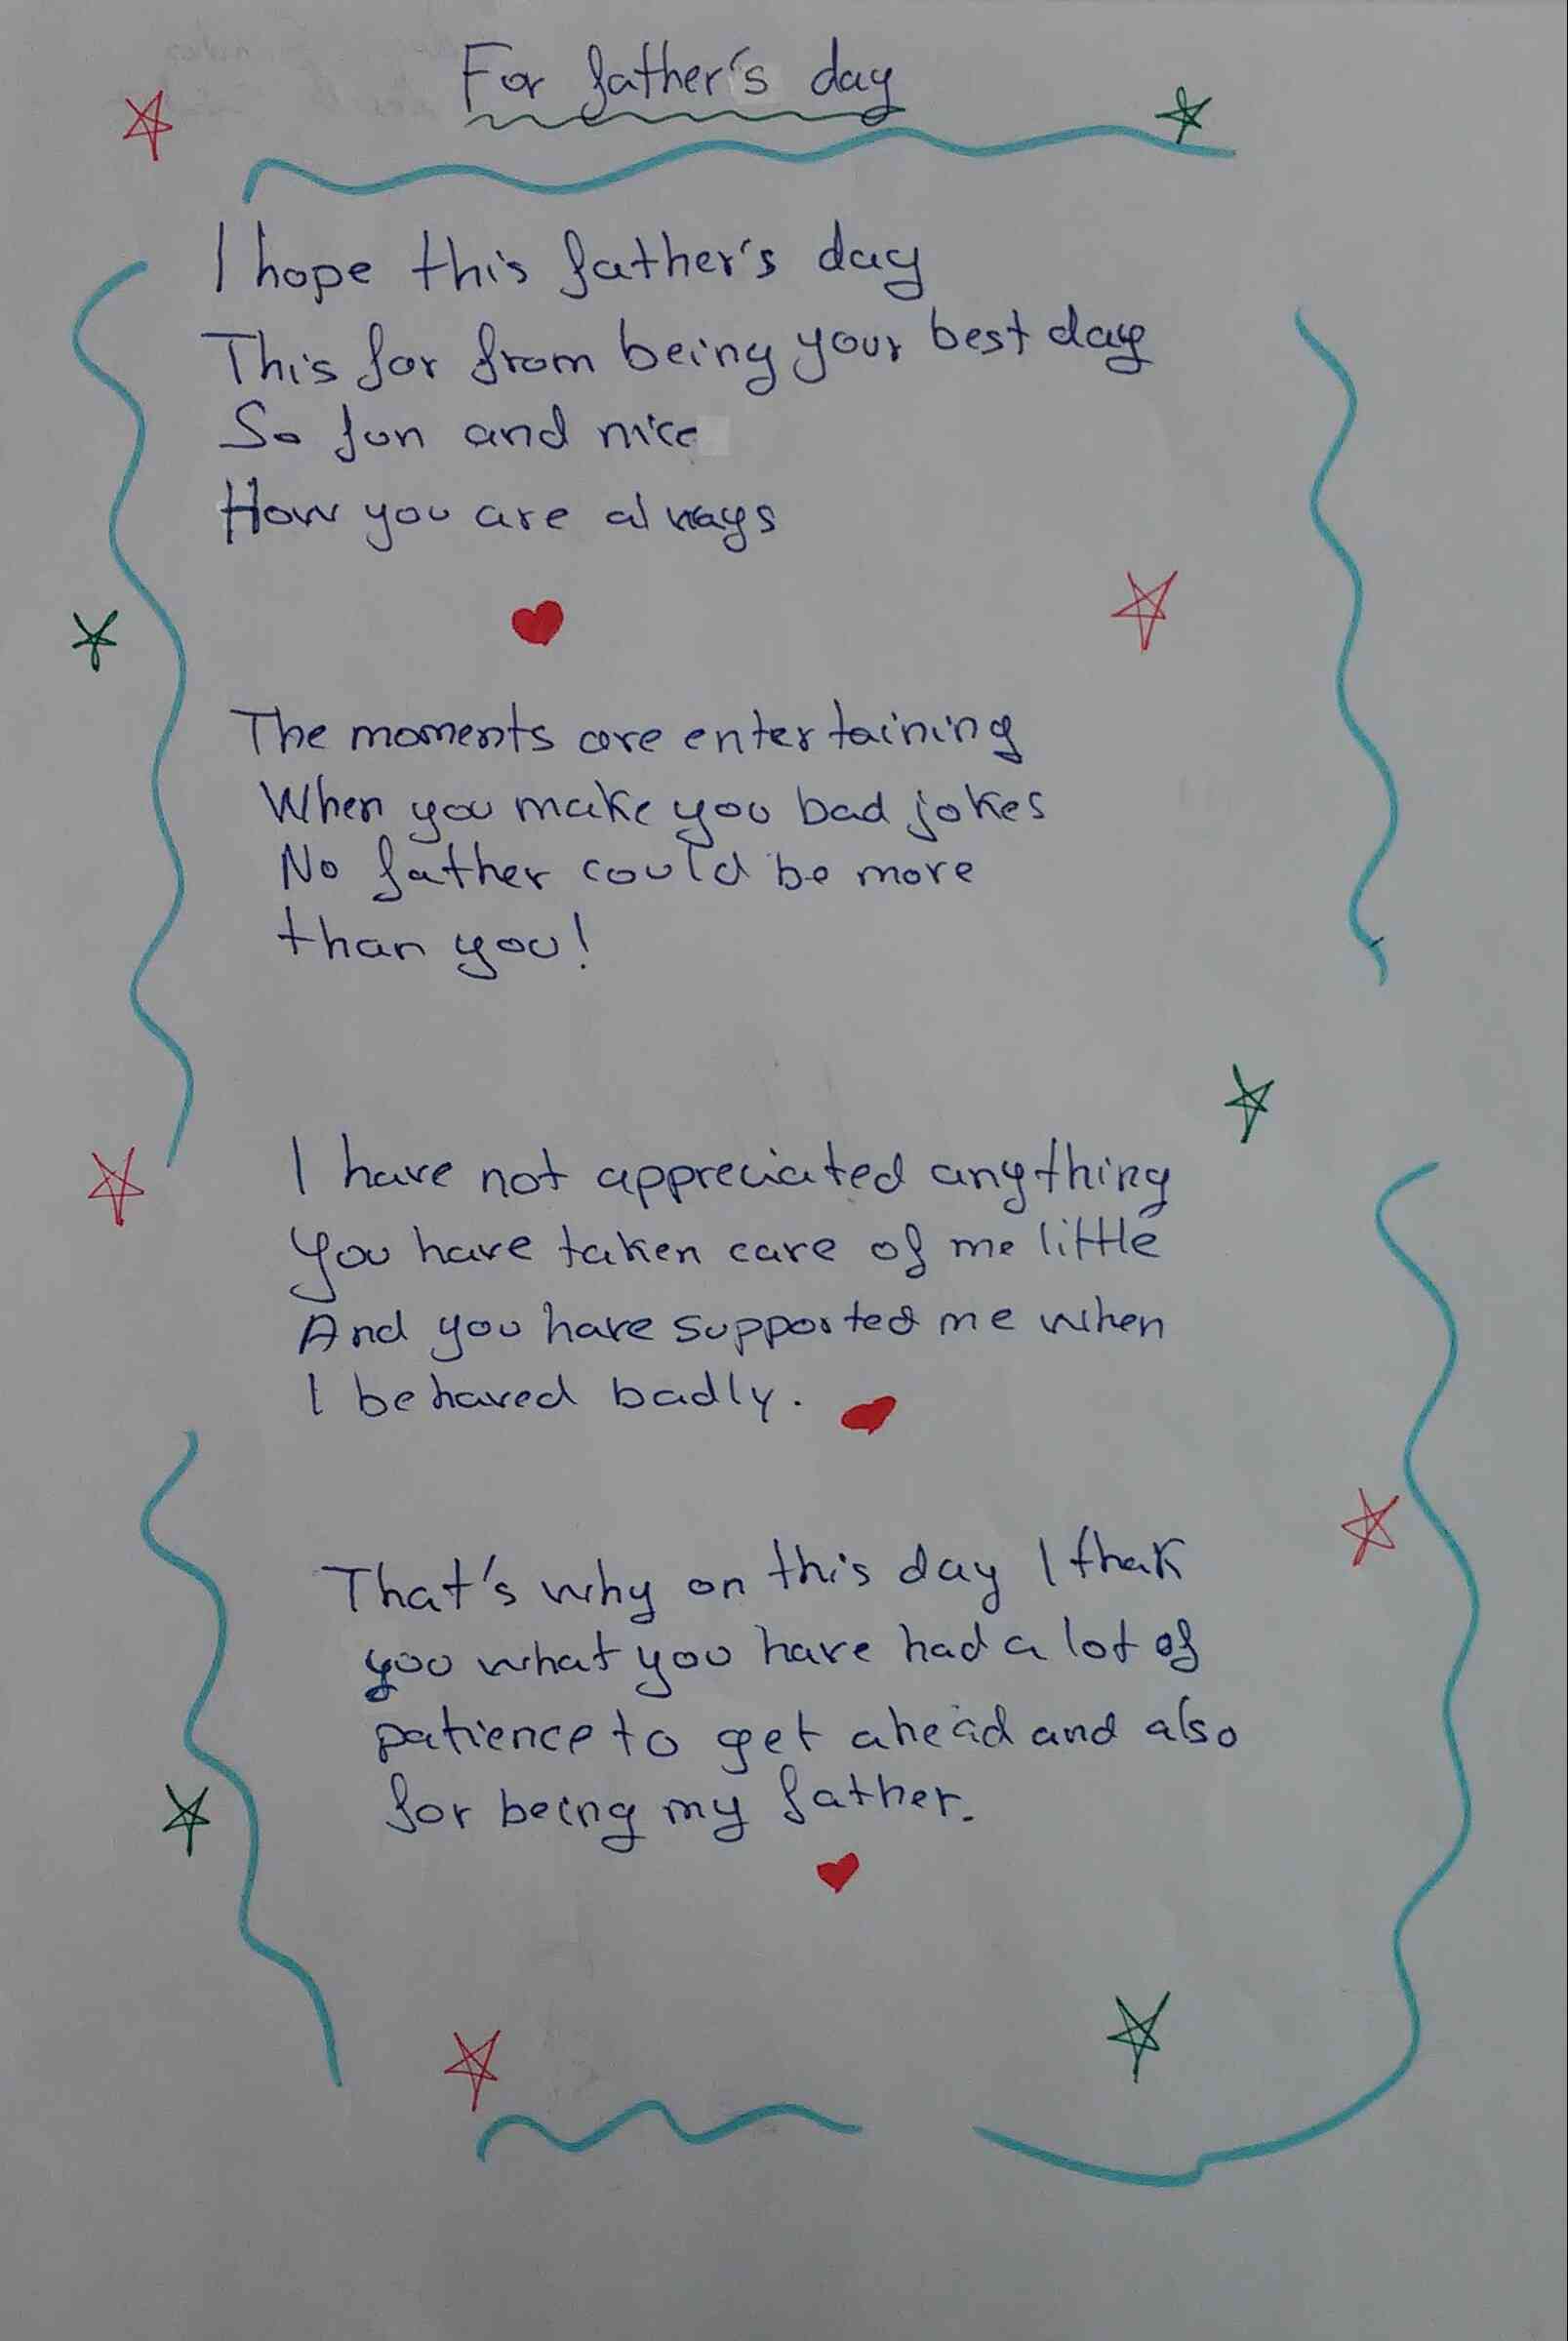 For father's day
I hope this father's day
This far from being your best day
So fun and nice
How you are always
The moments are entertaining
When you make you bad jokes
No father could be more
than you!
I have not appreciated anything
You have taken care of me little
And you have supported me when
I behaved badly.
That's why on this day I thak
you what you have had a lot of
patience to get ahead and also
for being my father.